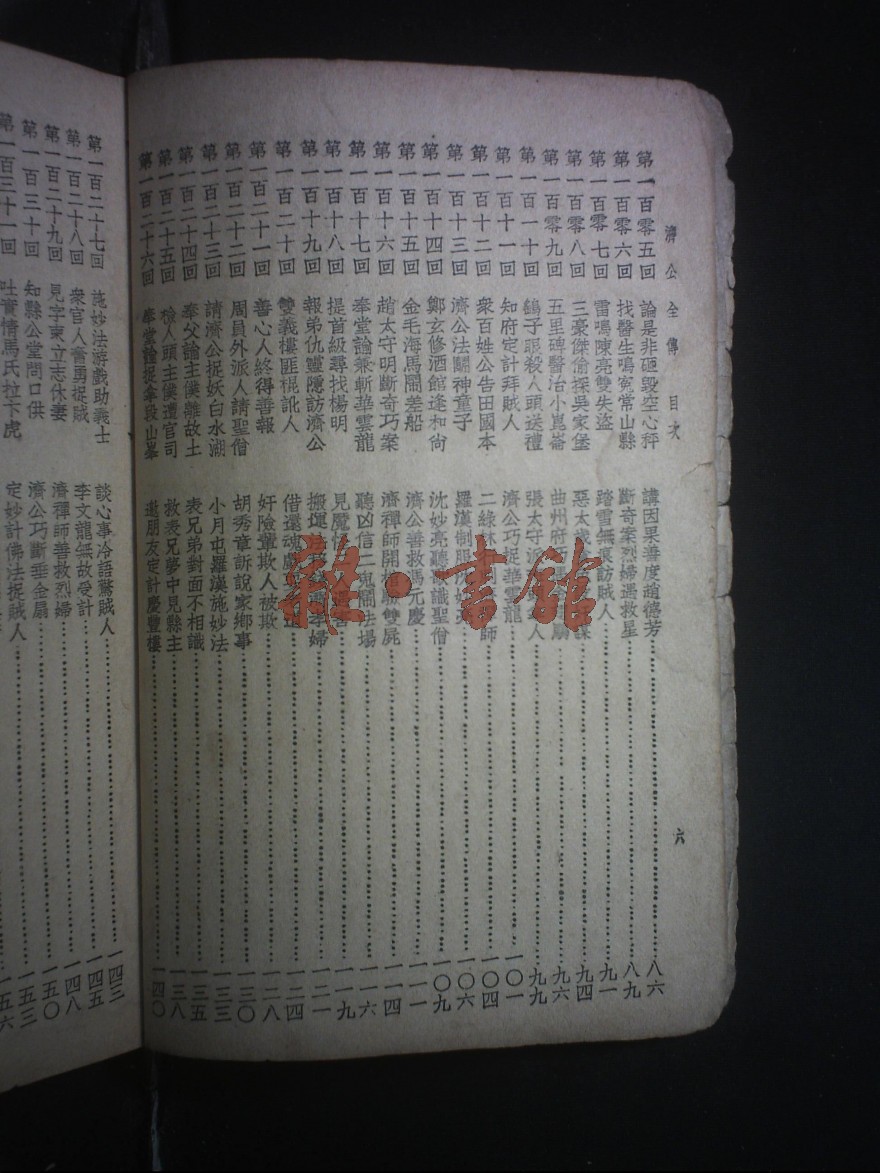 濟公全傳 目次 六
第一百零五回 論是非砸毀空心秤 講因果善度趙德芳 八六
第一百零六回 找醫生鳴寃常山縣 斷奇案烈婦遇救星 八九
第一百零七回 雷鳴陳亮雙失盜 踏雪無痕訪賊人 九一
第一百零八回 三豪傑偷探吳家堡 惡太歲 謀 九四
第一百零九回 五里碑醫治小崑崙 曲州府 九六
第一百一十回 鷂子眼殺人頭送禮 張太守派 人 九九
第一百十一回 知府定計拜賊人 濟公巧捉華雲龍 一〇一
第一百十二回 衆百姓公告田國本 二綠林 師 一〇四
第一百十三回 濟公法鬭神童子 羅漢制服沈妙亮 一〇六
第一百十四回 鄭玄修酒館逢和尙 沈妙亮聽 識聖僧 一〇九
第一百十五回 金毛海馬鬧差船 濟公善救馮元慶 一一一
第一百十六回 趙太守明斷奇巧案 濟禪師開棺驗雙屍 一一四
第一百十七回 奉堂諭兼斬華雲龍 聽凶信二鬼鬧法場 一一六
第一百十八回 提首級尋找楊明 見魔怪 一一九
第一百十九回 報弟仇靈隱訪濟公 搬運法 孝婦 一二一
第一百二十回 雙義樓匪棍訛人 借還魂 一二四
第一百二十一回 善心人終得善報 奸險輩欺人被欺 一二八
第一百二十二回 周員外派人請聖僧 胡秀章訴說家鄉事 一三〇
第一百二十三回 請濟公捉妖白水湖 小月屯羅漢施妙法 一三三
第一百二十四回 奉父諭主僕離故土 表兄弟對面不相識 一三五
第一百二十五回 檢人頭主僕遭官司 救表兄夢中見縣主 一三八
第一百二十六回 奉堂諭捉拿段山峯 邀朋友定計慶豐樓 一四〇
第一百二十七回 施妙法游戲助義士 談心事冷語驚賊人 一四三
第一百二十八回 衆官人奮勇捉賊 李文龍無故受計 一四五
第一百二十九回 見字柬立志休妻 濟禪師善救烈婦 一四八
第一百三十回 知縣公堂問口供 濟公巧斷垂金扇 一五〇
第一百三十一回 吐實情馬氏拉卞虎 定妙計佛法捉賊人 一五三
一五六
雜·書館